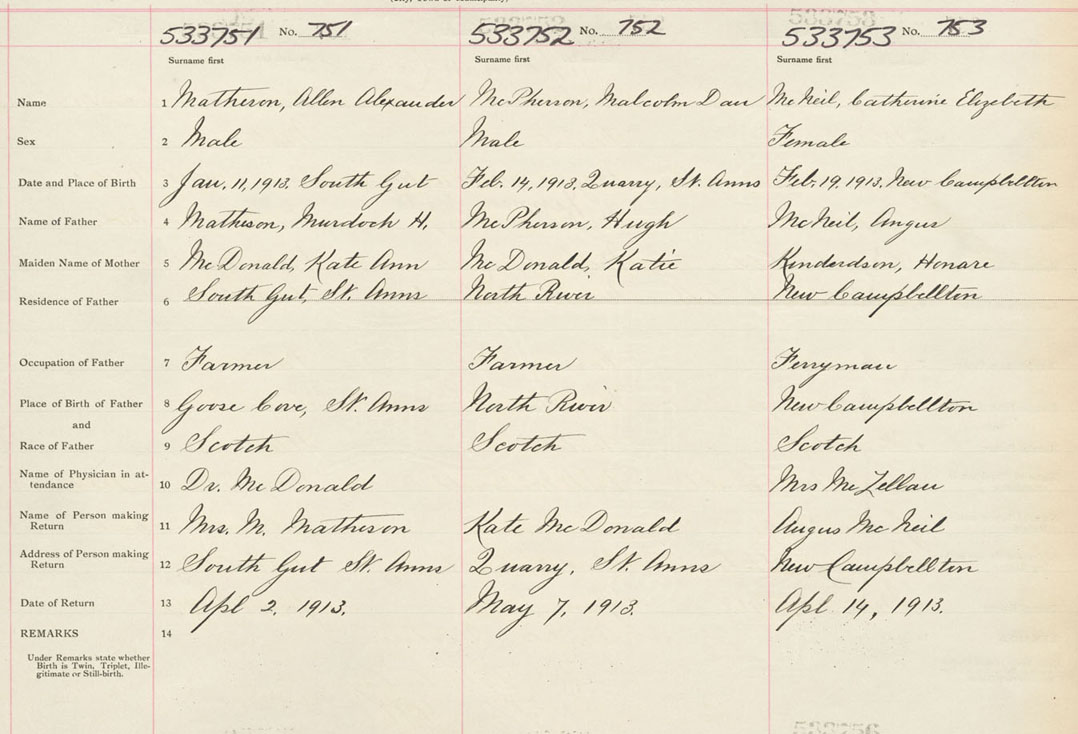 533751 No. 751 533752 No. 752 533753 No. 753
Surname first Surname first Surname first
Name 1 Matheson, Allen Alexander McPherson, Malcolm Dan McNeil, Catherine Elizebeth
Sex 2 Male Male Female
Date and Place of Birth 3 Jan. 11, 1913. South Gut Feb. 14, 1913. Quarry, St. Anns Feb. 19, 1913, New Campbellton
Name of Father 4 Matheson, Murdoch H. McPherson, Hugh McNeil, Angus
Maiden Name of Mother 5 McDonald, Kate Ann McDonald, Katie Honare
Residence of Father 6 South Gut, St. Anns North River New Campbellton
Occupation of Father 7 Farmer Farmer Ferryman
Place of Birth of Father 8 Goose Cove, St. Anns North River New Campbellton
and
Race of Father 9 Scotch Scotch Scotch
Name of Physician in at-
tendance 10 Dr. McDonald Mrs
Name of Person making
Return 11 Mrs. M. Matheson Kate McDonald Angus McNeil
Address of Person making
Return 12 South Gut St. Anns Quarry, St. Anns New Campbellton
Date of Return 13 Apl 2, 1913. May 7, 1913. Apl 14, 1913.
REMARKS 14
Under Remarks state whether
Birth is Twin, Triplet, Ille-
gitimate or Still-birth.